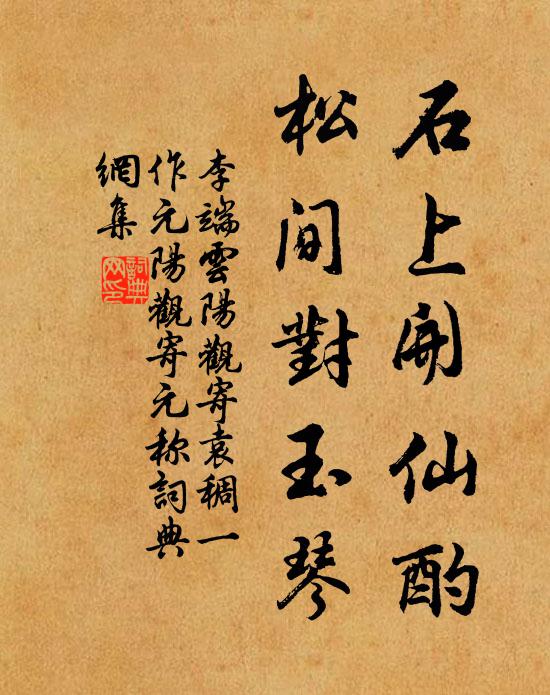 石上開仙酌
松間對玉琴
李端雲陽觀寄袁稠一
作元陽觀寄元称詞典
網集
詞典
网印